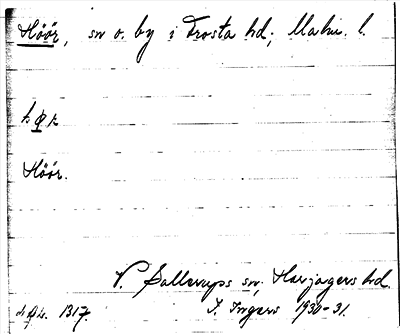 Höör, sn o. by i Frosta hd, Malm. l.
hør
Höör.
V. Sallerups sn, Harjagers hd.
1317. I. Ingers 1930-31.